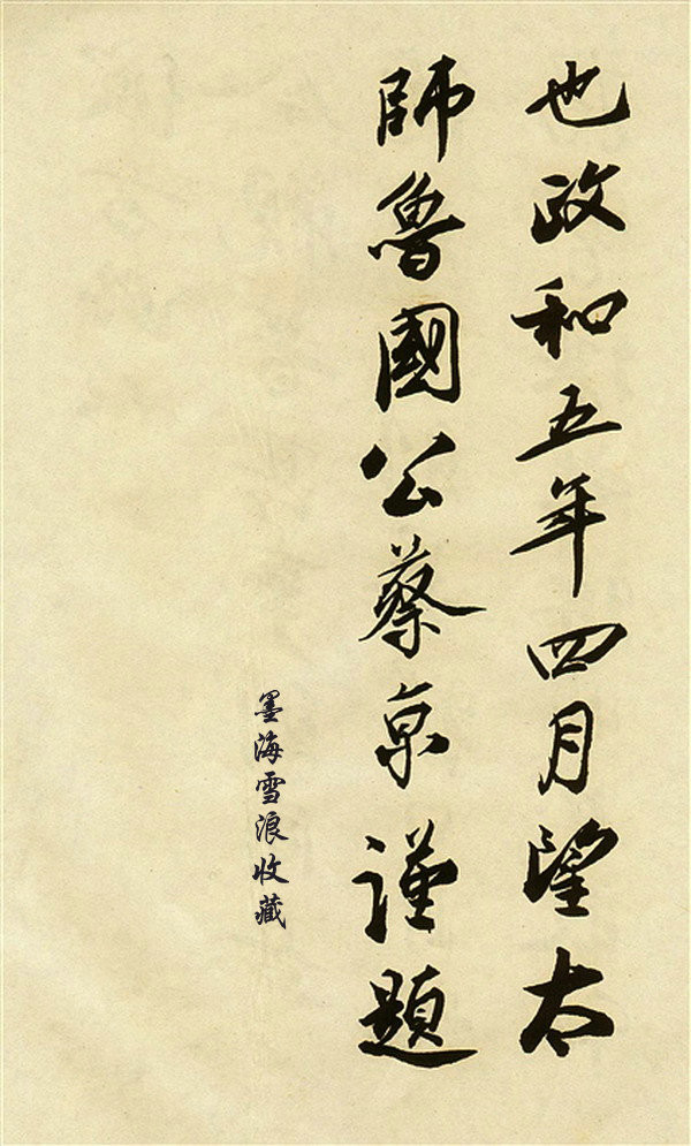 也政和五年四月望太
師魯國公蔡京謹題
墨海雪浪收藏